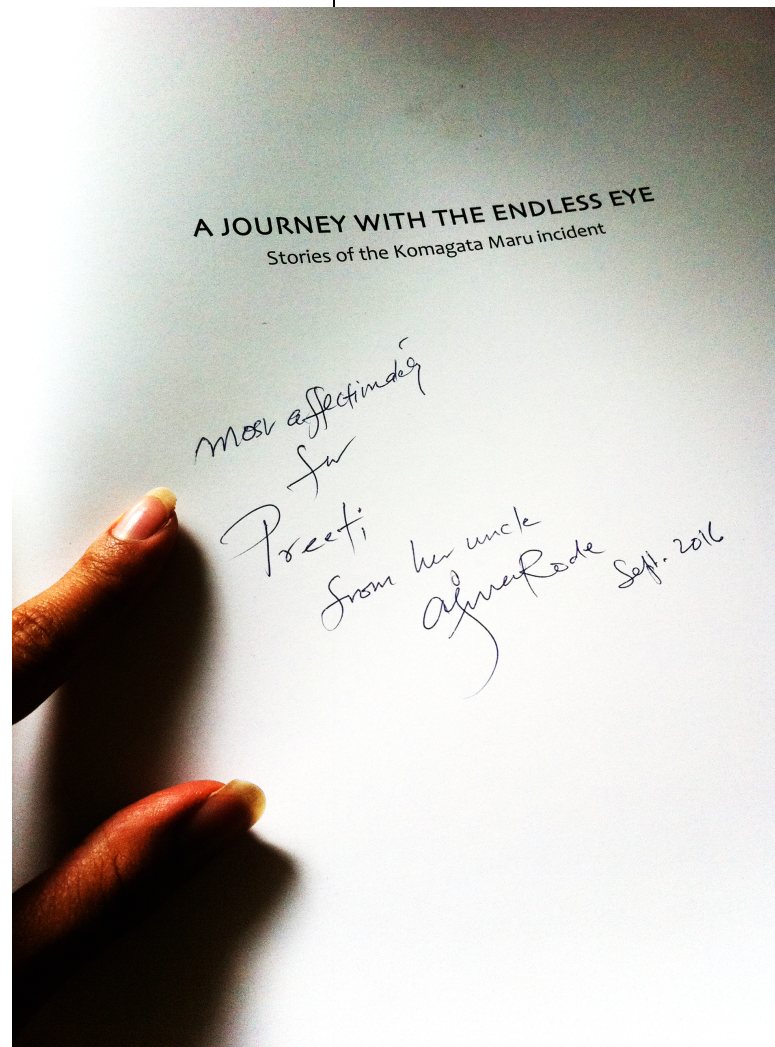 A JOURNEY WITH THE ENDLESS EYE
Stories of the Komagata Maru incident
most affectionately
for
Preeti
from her uncle
Ajmer Rode Sept. 2016